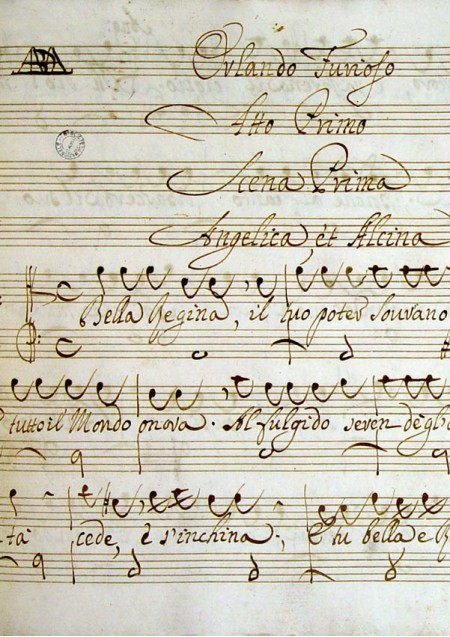 Orlando Furioso
Atto Primo
Scena Prima
Angelica, et Alcina
Bella Regina, il tuo poter souvano
tutto il Mondo onora. Al fulgido seren degl
ta cede, è s'inchina; E tu bella e R